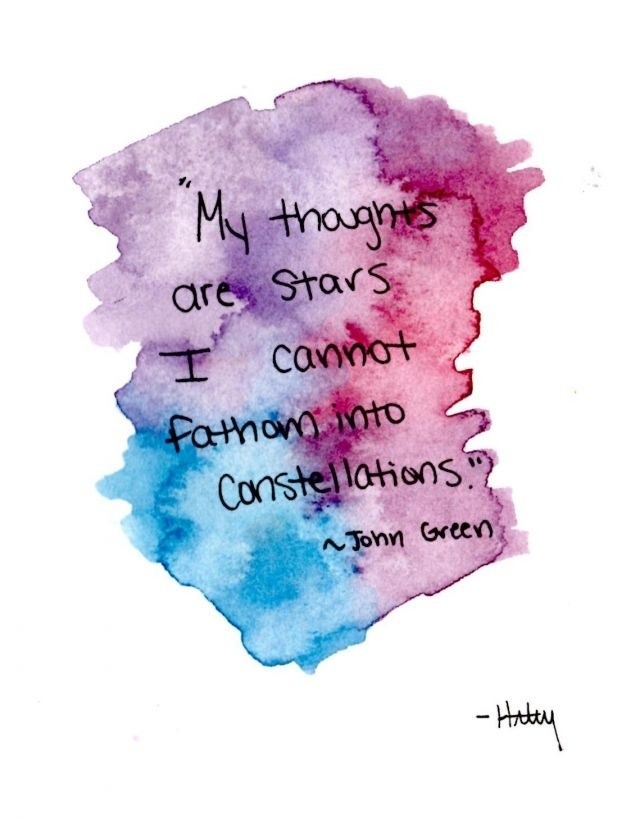 "My thoughts
are stars
I cannot
fathom into
Constellations."
~John Green